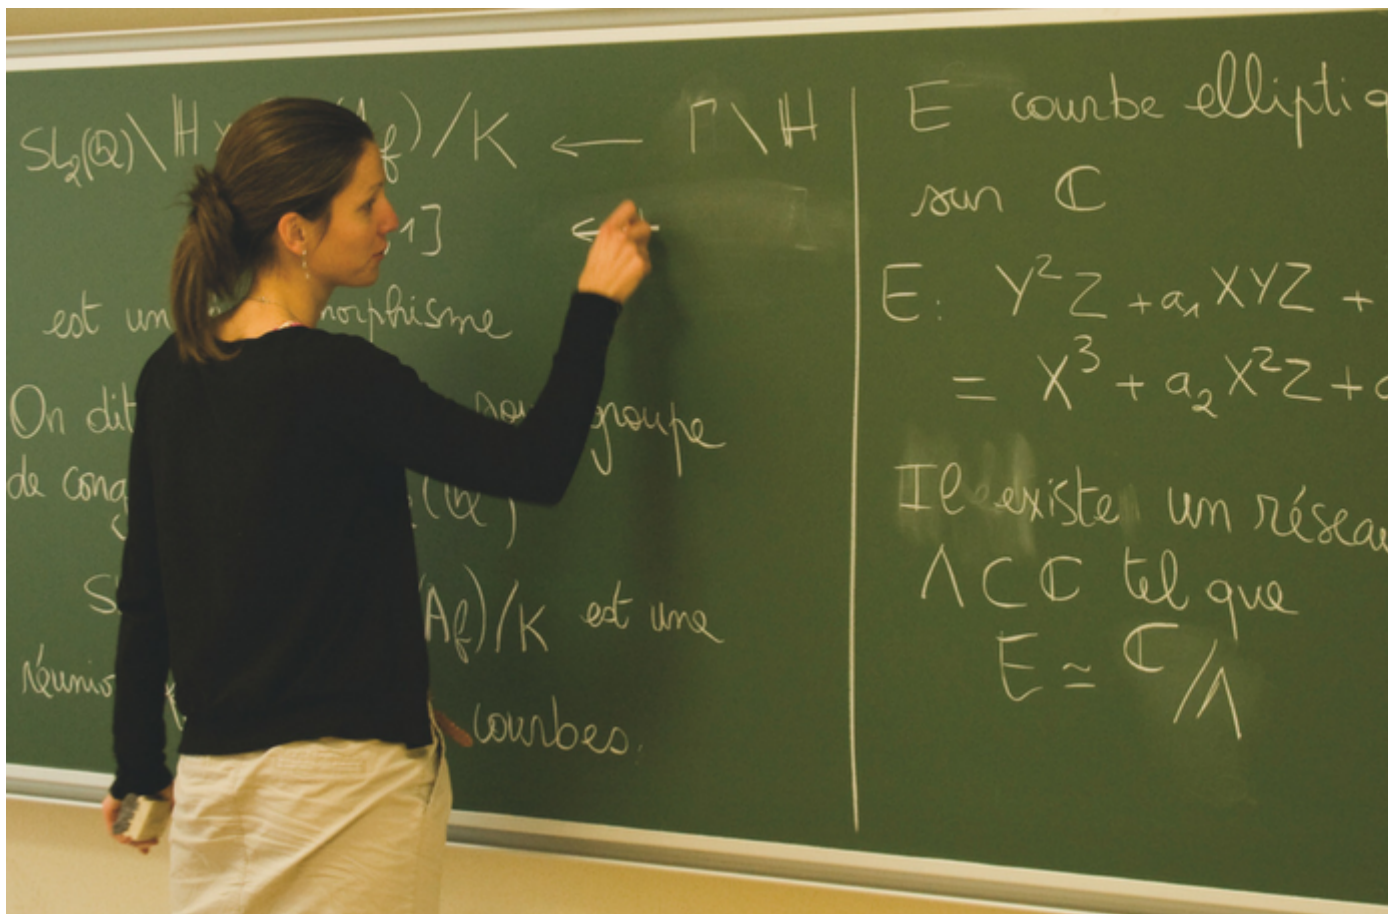 SL₂(Q)\H × (A_f)/K ← Γ\H
1] ←
est un morphisme
On dit sous groupe
de cong (Q)
(A_f)/K est une
réunio
courbes.
E courbe ellipti
sur ℂ
E: Y²Z + a₁XYZ +
= X³ + a₂X²Z + a
Il existe un réseau
Λ ⊂ ℂ tel que
E ≃ ℂ/Λ